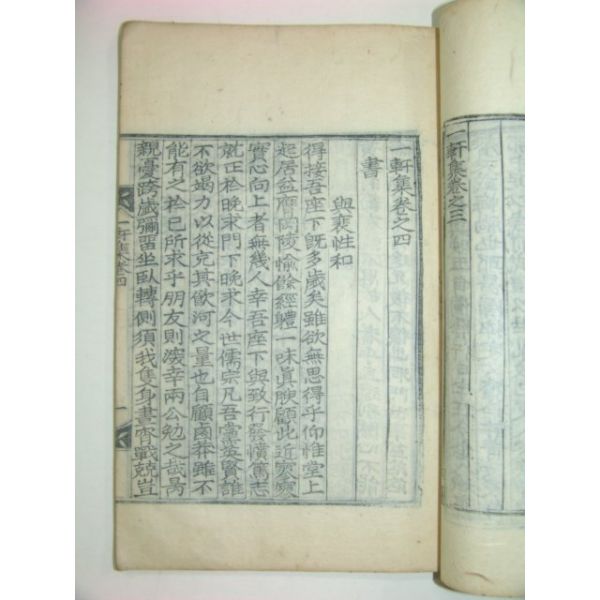 一軒集卷之三
一軒集卷之四
書
與裵性和
得接吾座下旣多歲矣雖欲無思得乎仰惟堂上
起居益膺岡陵愉餘經體一味眞腴顧此近來
實心向上者無幾人幸吾座下與致行發憤篤志
就正於晚求門下晚求今世儒宗凡吾黨英賢誰
不欲竭力以從克其飮河之量也自顧鹵莽雖不
能有之於已所求乎朋友則深幸兩公勉之哉
親憂跨歲彌留坐臥轉側須我隻身晝宵戰兢豈
一軒集卷四
一